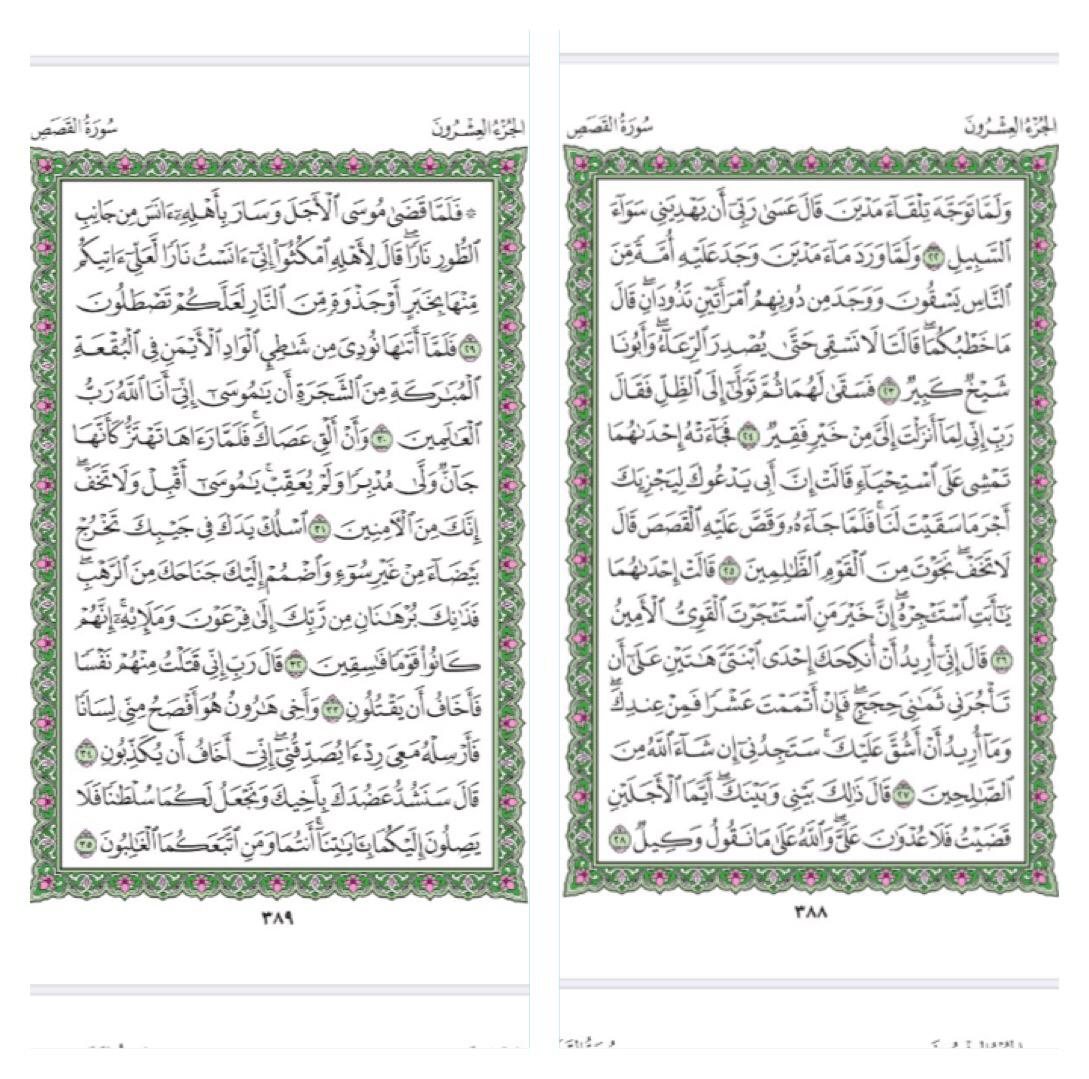 الجُزْءُ العِشْرُونَ
سُورَةُ القَصَصِ
وَلَمَّا تَوَجَّهَ تِلْقَآءَ مَدْيَنَ قَالَ عَسَىٰ رَبِّىٓ أَن يَهْدِيَنِى سَوَآءَ
ٱلسَّبِيلِ ٢٢ وَلَمَّا وَرَدَ مَآءَ مَدْيَنَ وَجَدَ عَلَيْهِ أُمَّةً مِّنَ
ٱلنَّاسِ يَسْقُونَ وَوَجَدَ مِن دُونِهِمُ ٱمْرَأَتَيْنِ تَذُودَانِۖ قَالَ
مَا خَطْبُكُمَاۖ قَالَتَا لَا نَسْقِى حَتَّىٰ يُصْدِرَ ٱلرِّعَآءُۖ وَأَبُونَا
شَيْخٌ كَبِيرٌ ٢٣ فَسَقَىٰ لَهُمَا ثُمَّ تَوَلَّىٰٓ إِلَى ٱلظِّلِّ فَقَالَ
رَبِّ إِنِّى لِمَآ أَنزَلْتَ إِلَىَّ مِنْ خَيْرٍ فَقِيرٌ ٢٤ فَجَآءَتْهُ إِحْدَىٰهُمَا
تَمْشِى عَلَى ٱسْتِحْيَآءٍ قَالَتْ إِنَّ أَبِى يَدْعُوكَ لِيَجْزِيَكَ
أَجْرَ مَا سَقَيْتَ لَنَاۚ فَلَمَّا جَآءَهُۥ وَقَصَّ عَلَيْهِ ٱلْقَصَصَ قَالَ
لَا تَخَفْۖ نَجَوْتَ مِنَ ٱلْقَوْمِ ٱلظَّٰلِمِينَ ٢٥ قَالَتْ إِحْدَىٰهُمَا
يَٰٓأَبَتِ ٱسْتَـْٔجِرْهُۖ إِنَّ خَيْرَ مَنِ ٱسْتَـْٔجَرْتَ ٱلْقَوِىُّ ٱلْأَمِينُ
٢٦ قَالَ إِنِّىٓ أُرِيدُ أَنْ أُنكِحَكَ إِحْدَى ٱبْنَتَىَّ هَٰتَيْنِ عَلَىٰٓ أَن
تَأْجُرَنِى ثَمَٰنِىَ حِجَجٍۖ فَإِنْ أَتْمَمْتَ عَشْرًا فَمِنْ عِندِكَۖ
وَمَآ أُرِيدُ أَنْ أَشُقَّ عَلَيْكَۚ سَتَجِدُنِىٓ إِن شَآءَ ٱللَّهُ مِنَ
ٱلصَّٰلِحِينَ ٢٧ قَالَ ذَٰلِكَ بَيْنِى وَبَيْنَكَۖ أَيَّمَا ٱلْأَجَلَيْنِ
قَضَيْتُ فَلَا عُدْوَٰنَ عَلَىَّۖ وَٱللَّهُ عَلَىٰ مَا نَقُولُ وَكِيلٌ ٢٨
٣٨٨
الجُزْءُ العِشْرُونَ
سُورَةُ القَصَصِ
۞ فَلَمَّا قَضَىٰ مُوسَى ٱلْأَجَلَ وَسَارَ بِأَهْلِهِۦٓ ءَانَسَ مِن جَانِبِ
ٱلطُّورِ نَارًاۖ قَالَ لِأَهْلِهِ ٱمْكُثُوٓا۟ إِنِّىٓ ءَانَسْتُ نَارًا لَّعَلِّىٓ ءَاتِيكُم
مِّنْهَا بِخَبَرٍ أَوْ جَذْوَةٍ مِّنَ ٱلنَّارِ لَعَلَّكُمْ تَصْطَلُونَ
٢٩ فَلَمَّآ أَتَىٰهَا نُودِىَ مِن شَٰطِئِ ٱلْوَادِ ٱلْأَيْمَنِ فِى ٱلْبُقْعَةِ
ٱلْمُبَٰرَكَةِ مِنَ ٱلشَّجَرَةِ أَن يَٰمُوسَىٰٓ إِنِّىٓ أَنَا ٱللَّهُ رَبُّ
ٱلْعَٰلَمِينَ ٣٠ وَأَنْ أَلْقِ عَصَاكَۚ فَلَمَّا رَءَاهَا تَهْتَزُّ كَأَنَّهَا
جَآنٌّ وَلَّىٰ مُدْبِرًا وَلَمْ يُعَقِّبْۚ يَٰمُوسَىٰٓ أَقْبِلْ وَلَا تَخَفْۖ
إِنَّكَ مِنَ ٱلْءَامِنِينَ ٣١ ٱسْلُكْ يَدَكَ فِى جَيْبِكَ تَخْرُجْ
بَيْضَآءَ مِنْ غَيْرِ سُوٓءٍ وَٱضْمُمْ إِلَيْكَ جَنَاحَكَ مِنَ ٱلرَّهْبِۖ
فَذَٰنِكَ بُرْهَٰنَانِ مِن رَّبِّكَ إِلَىٰ فِرْعَوْنَ وَمَلَإِي۟هِۦٓۚ إِنَّهُمْ
كَانُوا۟ قَوْمًا فَٰسِقِينَ ٣٢ قَالَ رَبِّ إِنِّى قَتَلْتُ مِنْهُمْ نَفْسًا
فَأَخَافُ أَن يَقْتُلُونِ ٣٣ وَأَخِى هَٰرُونُ هُوَ أَفْصَحُ مِنِّى لِسَانًا
فَأَرْسِلْهُ مَعِىَ رِدْءًا يُصَدِّقُنِىٓۖ إِنِّىٓ أَخَافُ أَن يُكَذِّبُونِ ٣٤
قَالَ سَنَشُدُّ عَضُدَكَ بِأَخِيكَ وَنَجْعَلُ لَكُمَا سُلْطَٰنًا فَلَا
يَصِلُونَ إِلَيْكُمَا بِـَٔايَٰتِنَآۚ أَنتُمَا وَمَنِ ٱتَّبَعَكُمَا ٱلْغَٰلِبُونَ ٣٥
٣٨٩